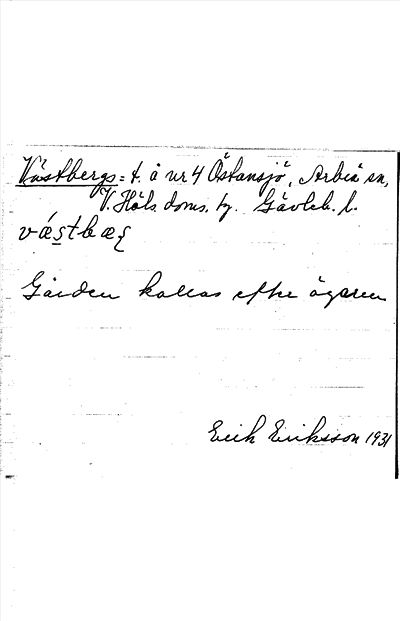 Västbergs = t. å nr 4 Östansjö, Arbrå sn,
V. Häls. doms. tg. Gävleb. l.
væstbæʂ
Gården kallas efter ägaren
Erik Eriksson 1931